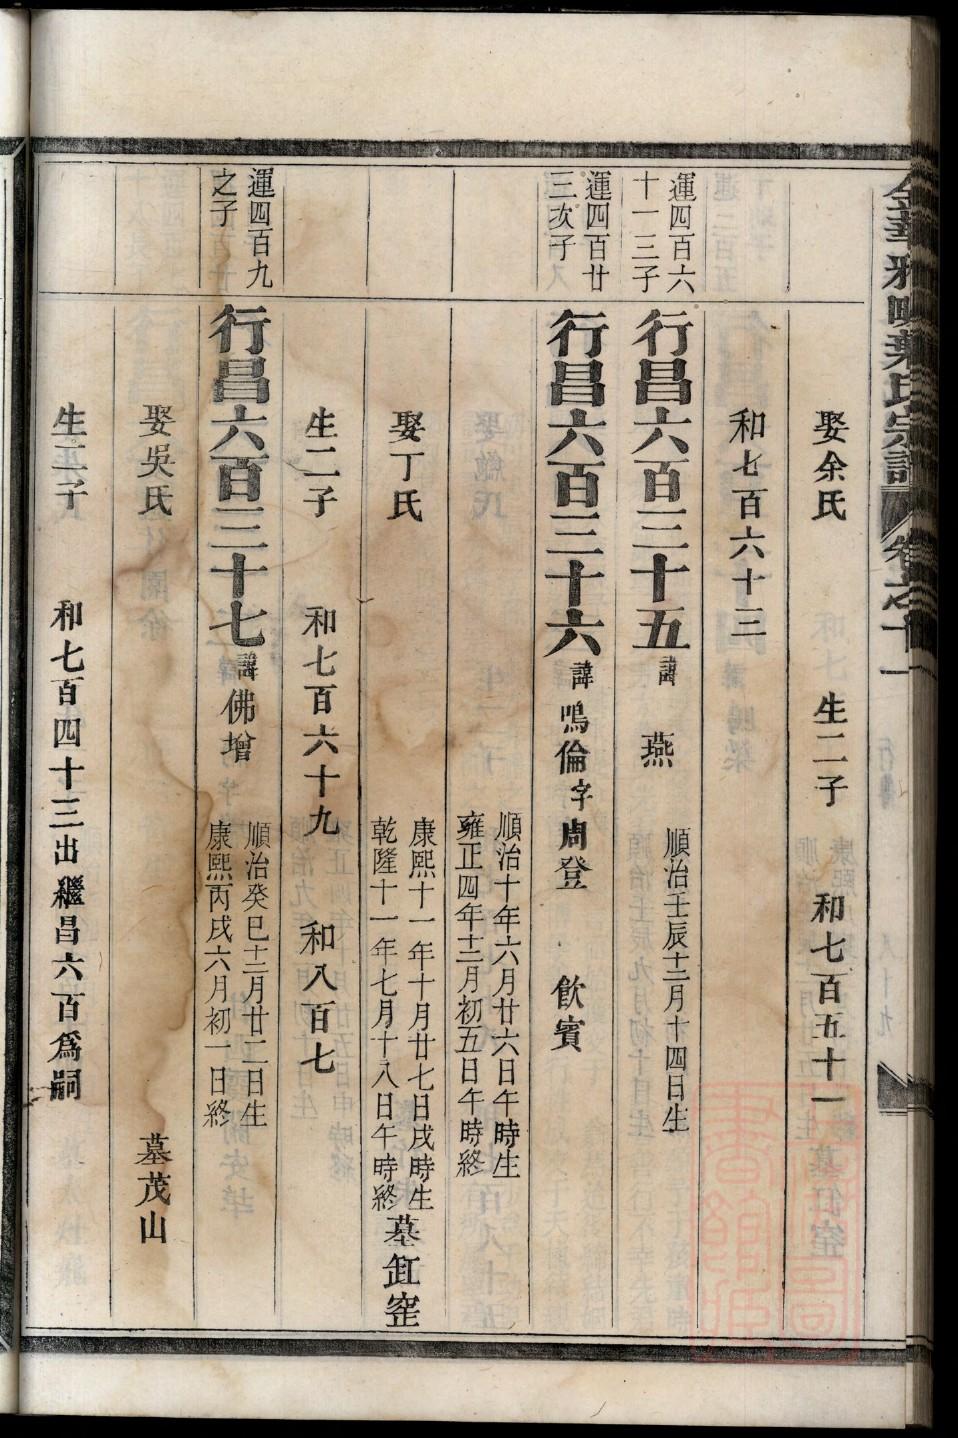 金華雅畈葉氏宗譜 卷之十一
娶余氏 生二子 和七百五十一
和七百六十三
運四百六
十一三子
行昌六百三十五 諱 燕 順治壬辰十二月十四日生
運四百廿
三次子
行昌六百三十六 諱鳴倫字周登 飲賓
順治十年六月廿六日午時生
雍正四年十二月初五日午時終
娶丁氏 康熙十一年十月廿七日戌時生
乾隆十一年七月十八日午時終 墓缸窑
生二子 和七百六十九 和八百七
運四百九
之子
行昌六百三十七 諱佛增 順治癸巳十二月廿二日生
康熙丙戌六月初一日終
娶吳氏 墓茂山
生一子 和七百四十三出繼昌六百爲嗣